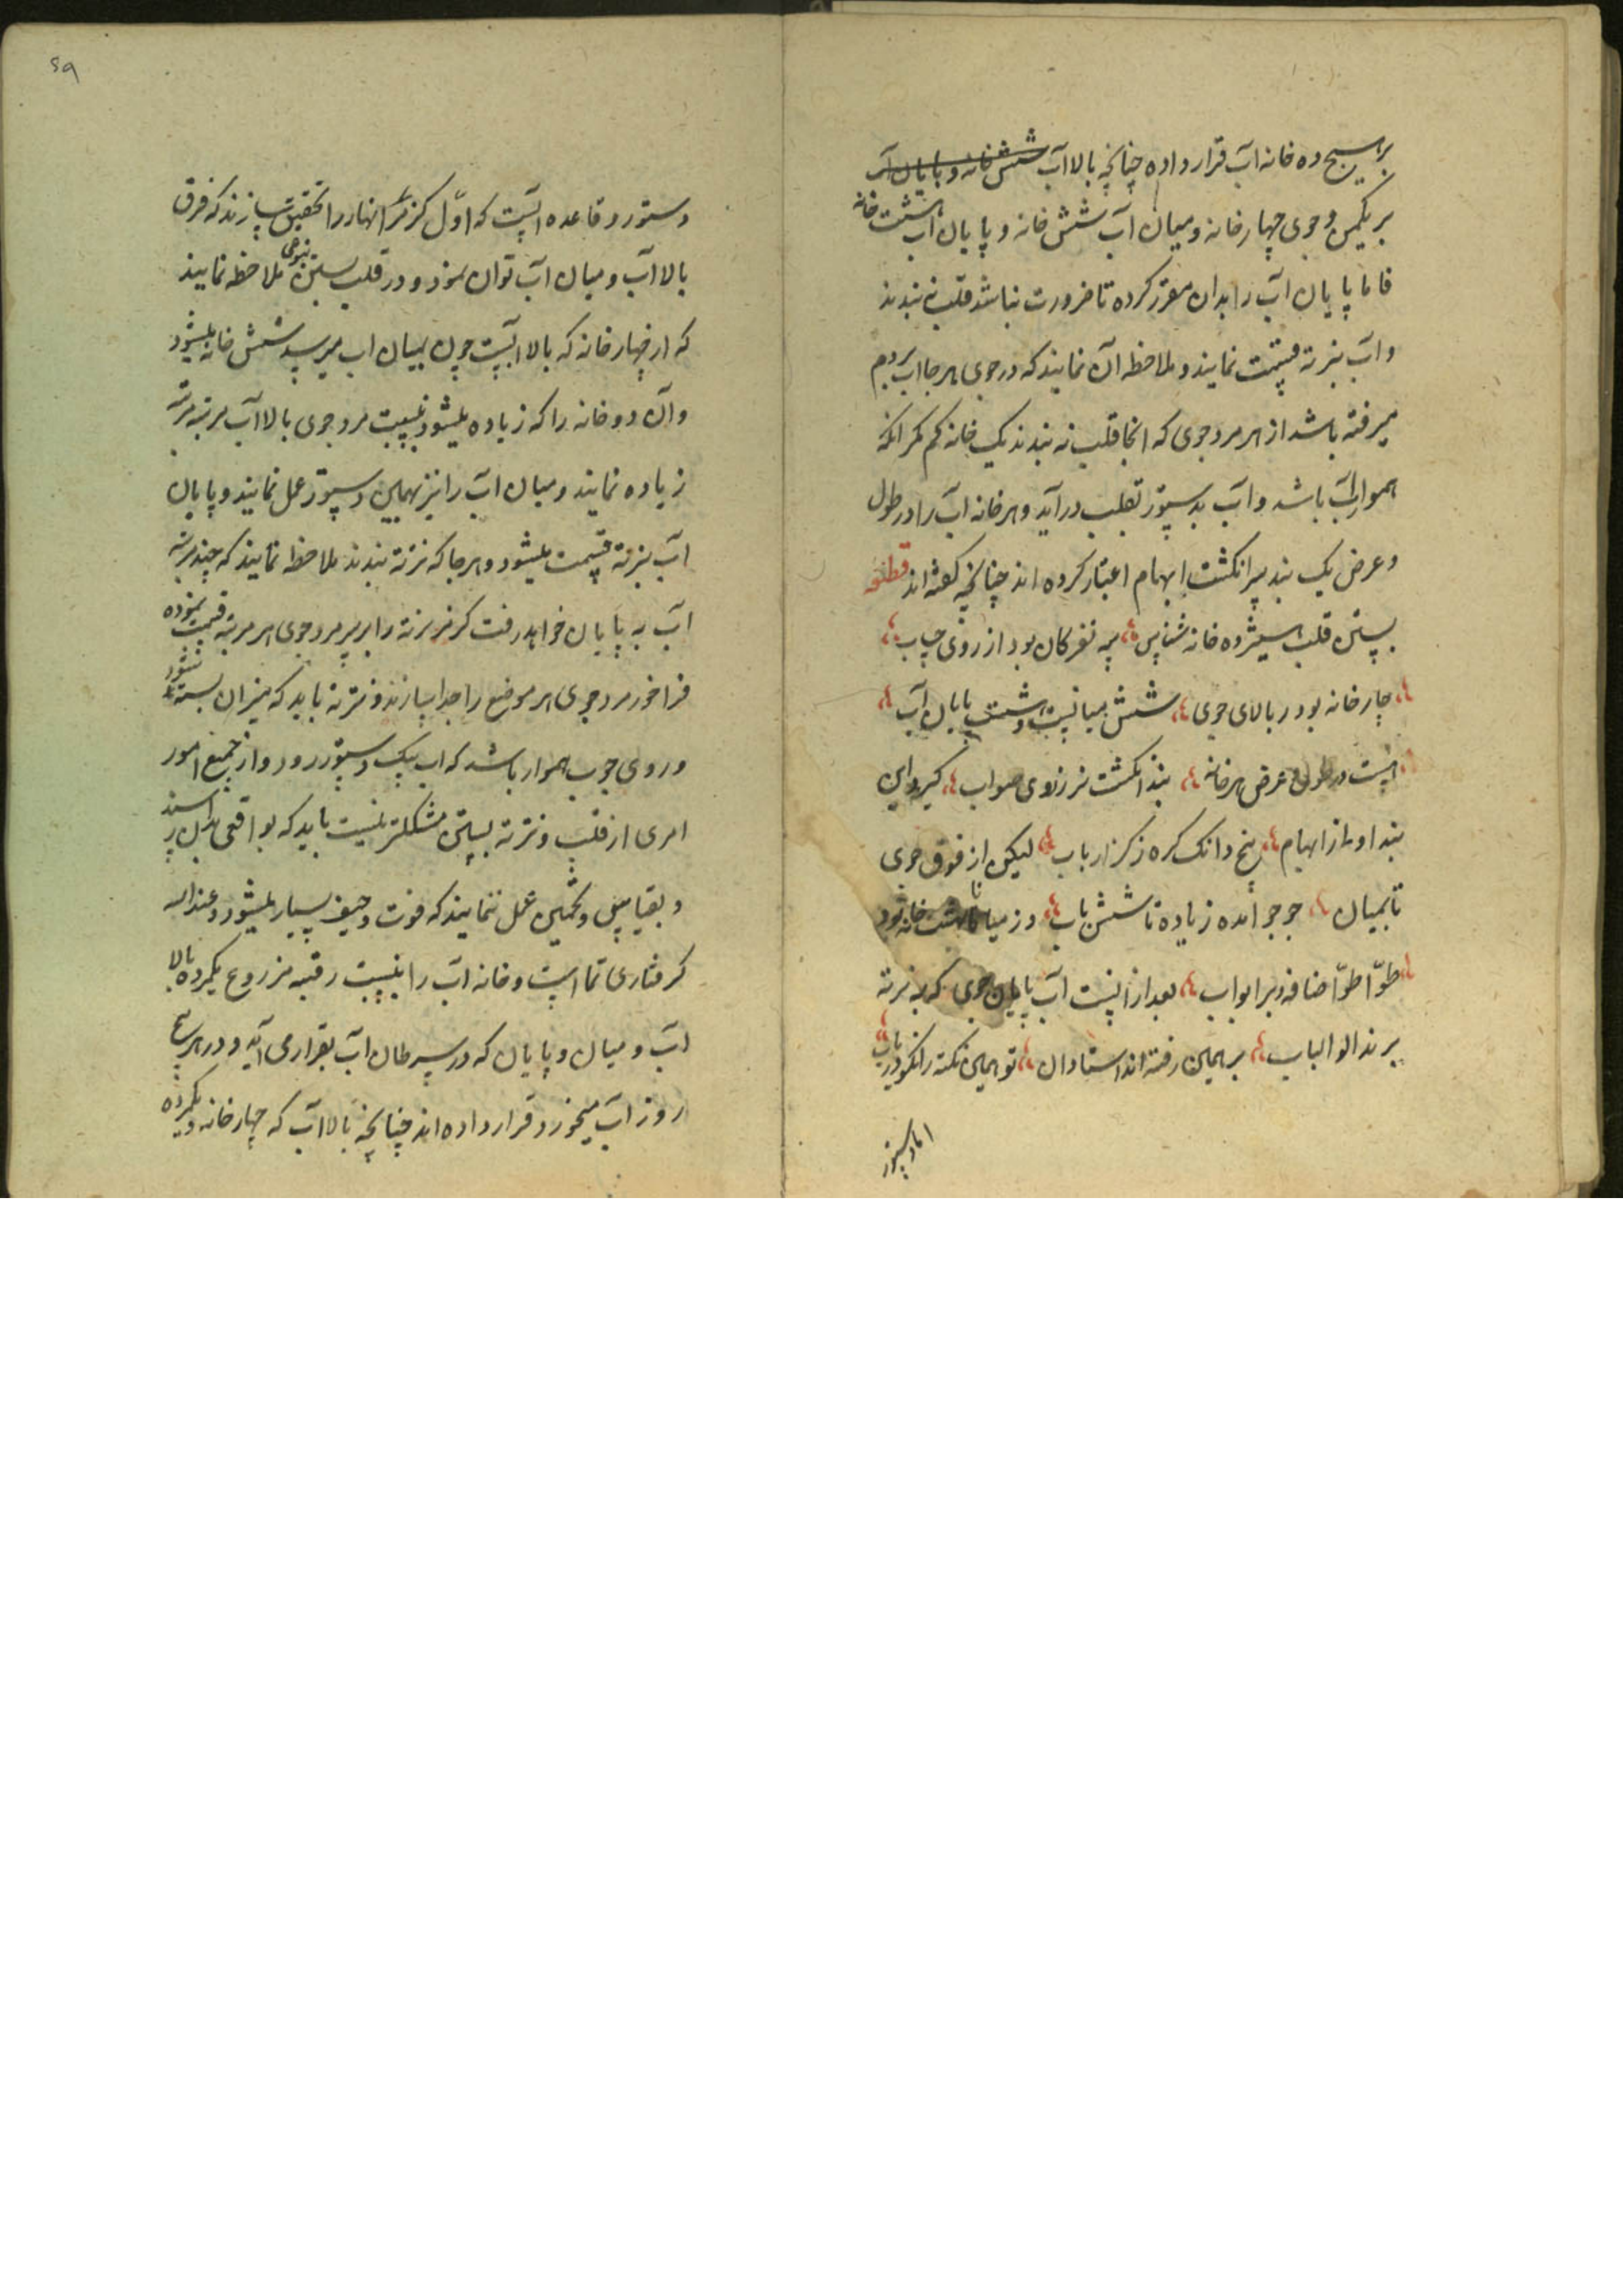 بر سیج ده خانه آب قرار داده چنانچه بالا آب شش خانه و پایان آب
بر یکمن و جوی چهار خانه و میان آب شش خانه و پایان آب هشت خانه
فاما پایان آب را بدان مقرر کرده تا ضرورت نباشد قلب نه بندند
و آب بنزنه قسمت نمایند و ملاحظه آن نمایند که در جوی هر جا آب بردم
میرفته باشد از هر مرد جوی که آنجا قلب نه بندند یک خانه کم کمرانکه
هموار آب باشد و آب بدستور بقلب در آید و هر خانه آب را در طول
و عرض یک بند سر انکشت ابهام اعتبار کرده اند چنانچه کفته اند قطعه
بستن قلب اسیژده خانه شناس سه نفر کان بود از روی حساب
چار خانه بود ر بالای جوی شش میانیست و هشت پایان آب
هست در طول و عرض هر خانه بند انکشت نر ز روی صواب کیر و این
بند اوسط از ابهام پنج دانک کره ز کز ار باب لیکن از فوق جوی
تا بمیان جو جو آمده زیاده تا شش باب وز میان تا بهشت خانه بود
طوّا طوّا اضافه بر ابواب بعد از انیست آب پایان جوی که به نزنه
برند الوالباب بر همین رفته اند استادان تو همین نکته را نکو دریاب
اما دستور
۶۹
دستور و قاعده آنست که اوّل کز کز انهار را تحقیق سازند که فرق
بالا آب و میان آب توان نمود و در قلب بستن بنوعی ملاحظه نمایند
که از چهار خانه که بالا آبست چون بمیان آب میرسد شش خانه میشود
و آن دو خانه را که زیاده میشود بنسبت مرد جوی بالا آب مرتبه مرتبه
زیاده نمایند و میان آب را نیز بهمین دستور عمل نمایند و پایان
آب بنزنه قسمت میشود و هر جا که نزنه بندند ملاحظه نمایند که چند مرتبه
آب به پایان خواهد رفت کز کز نزنه را بر سر مرد جوی هر مرتبه قسمت نموده
فراخور مرد جوی هر موضع را جدا سازند و نزنه باید که بمیزان بسته شود
و روی چوب هموار باشد که آب بیک دستور رود و از جمیع امور
امری از قلب و نزنه بستن مشکلتر نیست باید که بواقعی بدان رسند
و بقیاس و تخمین عمل ننمایند که فوت و حیف بسیار میشود و عند الله
کرفتاری تمام است و خانه آب را بنسبت رقبه مزروع یکمرده بالا
آب و میان و پایان که در سرطان آب بقرار می آید و در هر سج
روز آب میخورد قرار داده اند چنانچه بالا آب که چهار خانه و یکمرده